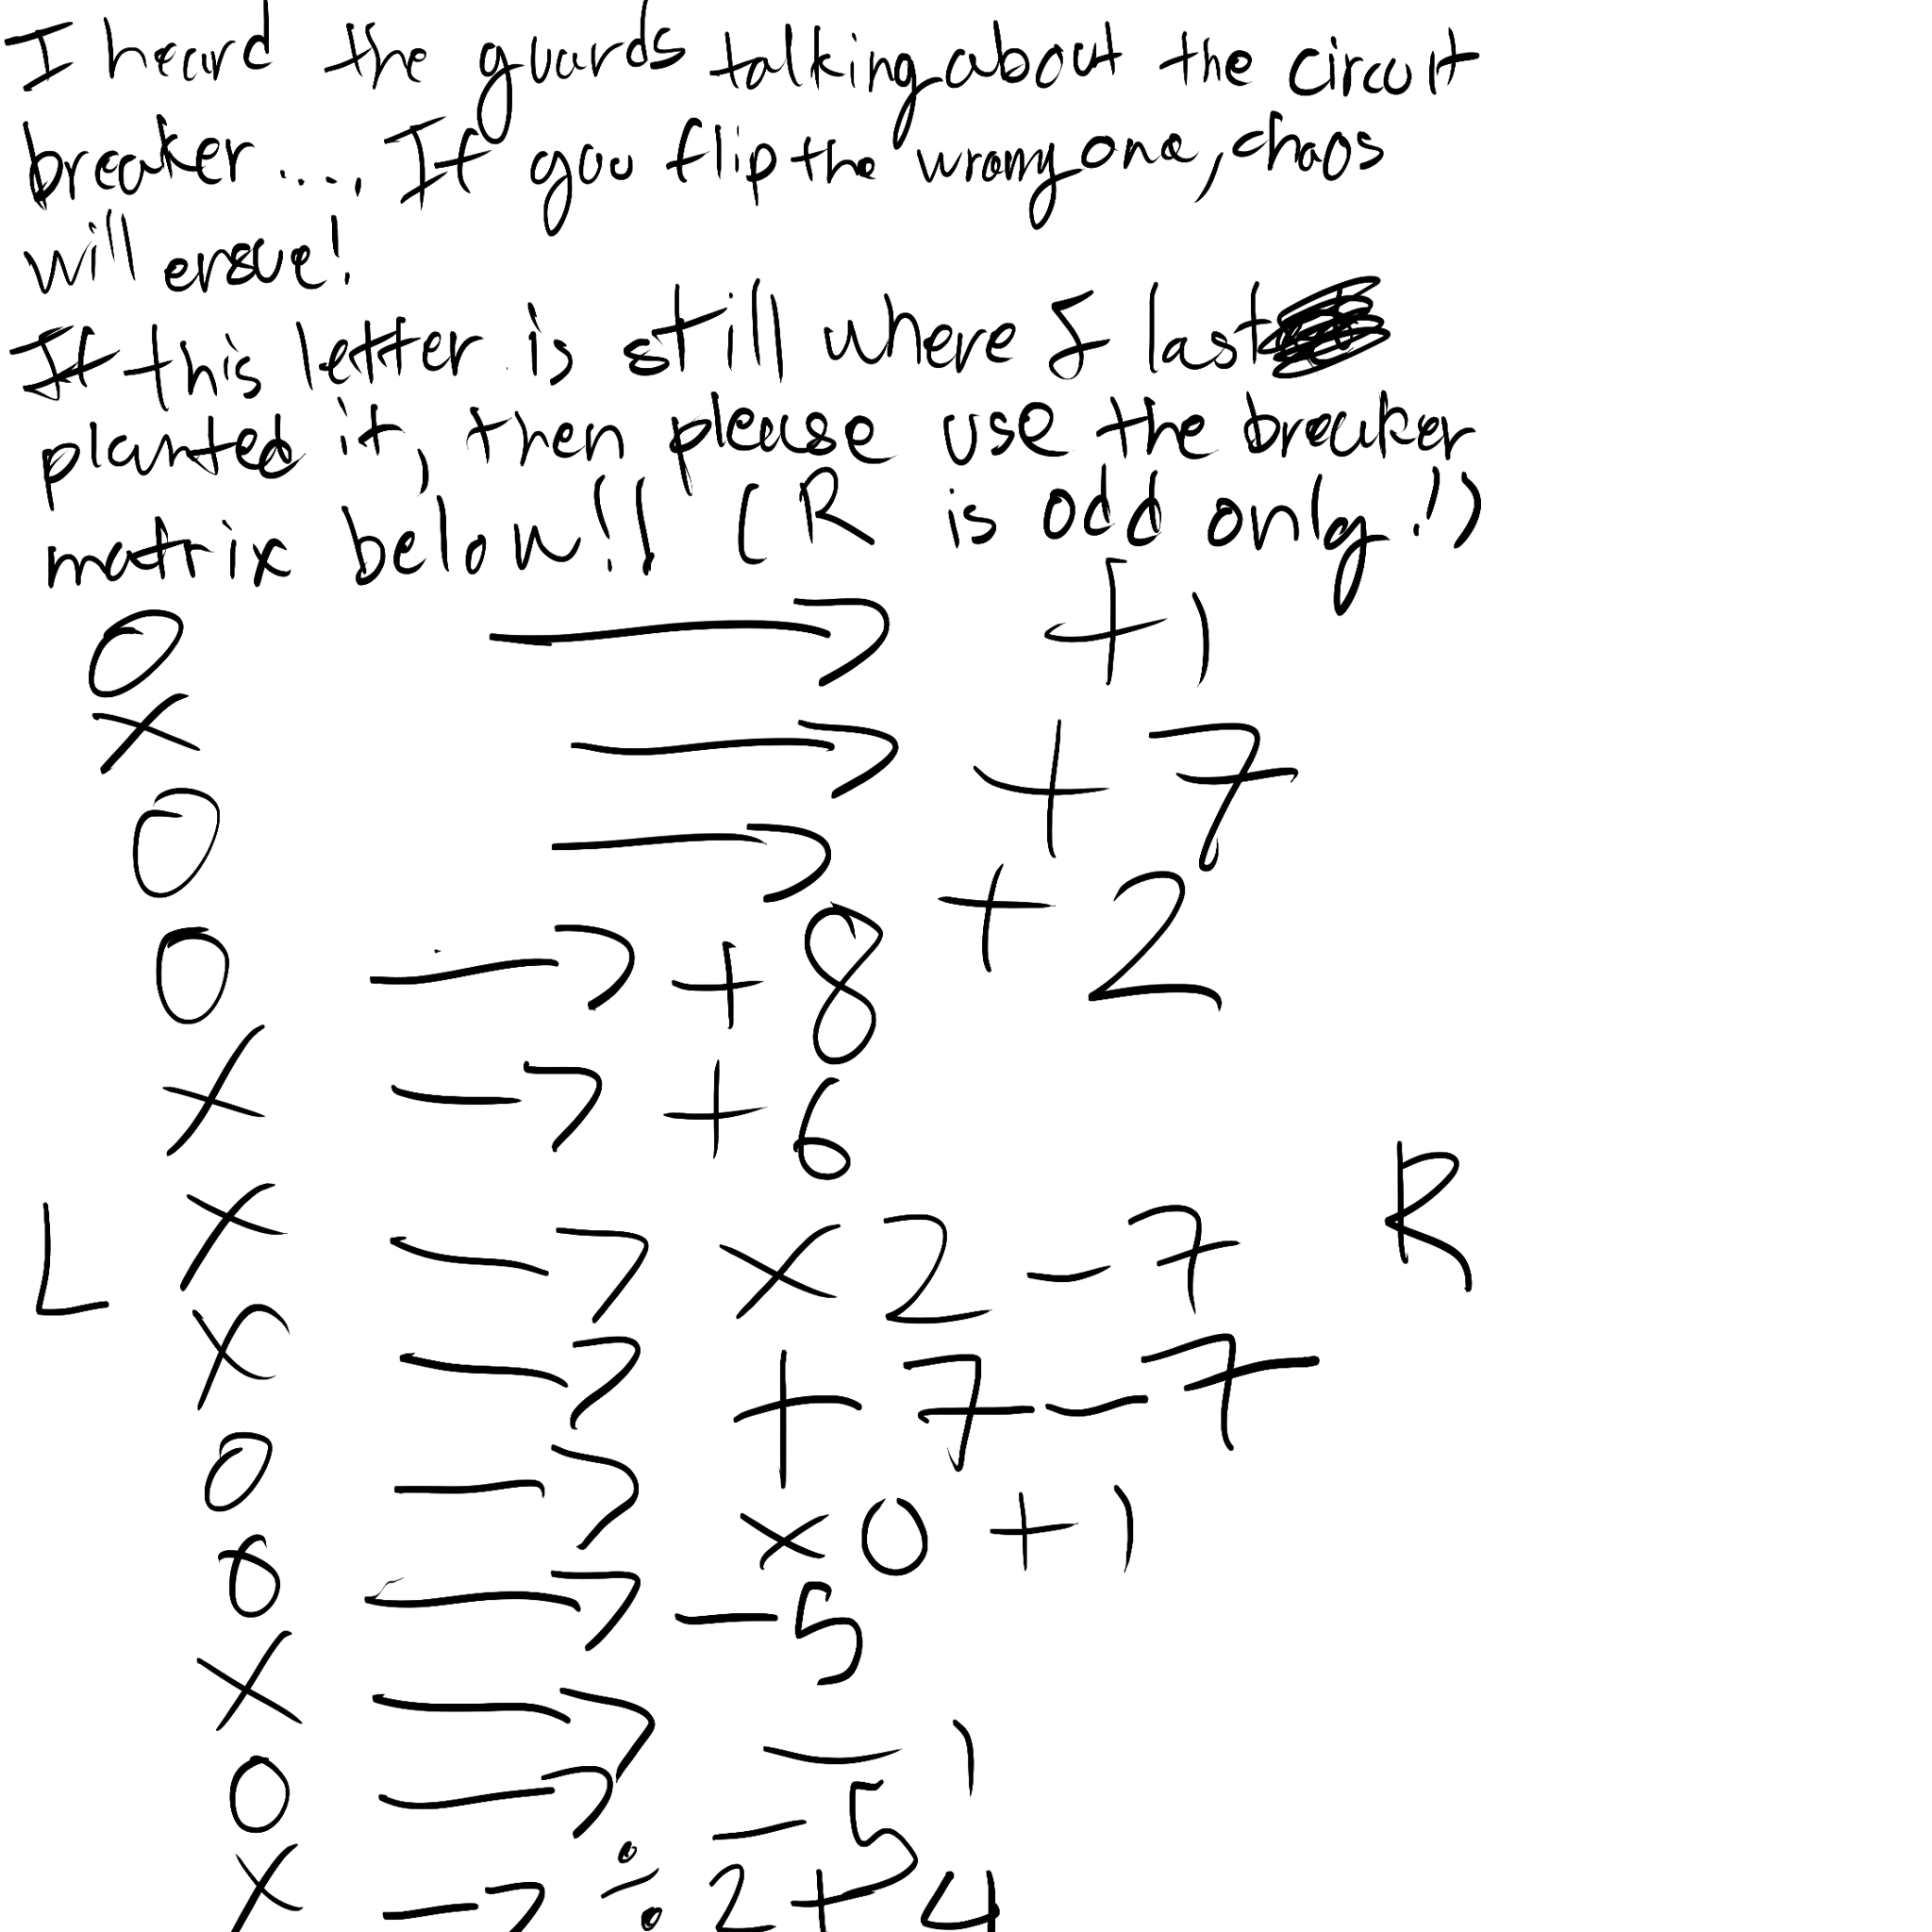 I heard the guards talking about the circuit
breaker...., If you flip the wrong one, chaos
will ensue!
If this letter is still where I last
planted it, then please use the breaker
matrix below!! (R is odd only!)
O → +1
X → +7
O → +2
O → +8
X → +6
L X → x2-7 R
X → +7-7
O → x0+1
O → -5
X → -1
O → -5
X → ÷2+4